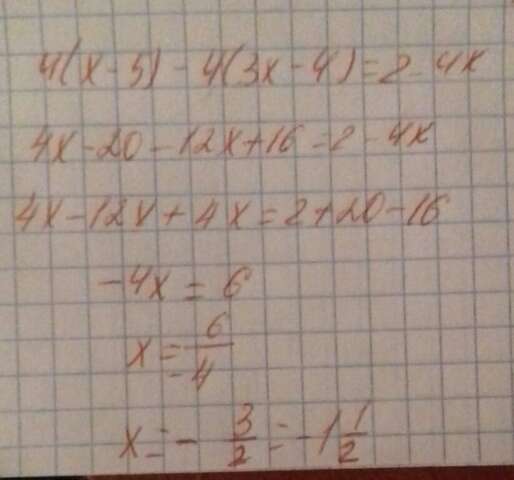 4(x-5) - 4(3x-4) = 2 - 4x
4x - 20 - 12x + 16 = 2 - 4x
4x - 12x + 4x = 2 + 20 - 16
-4x = 6
x = 6/-4
x = - 3/2 = -1 1/2